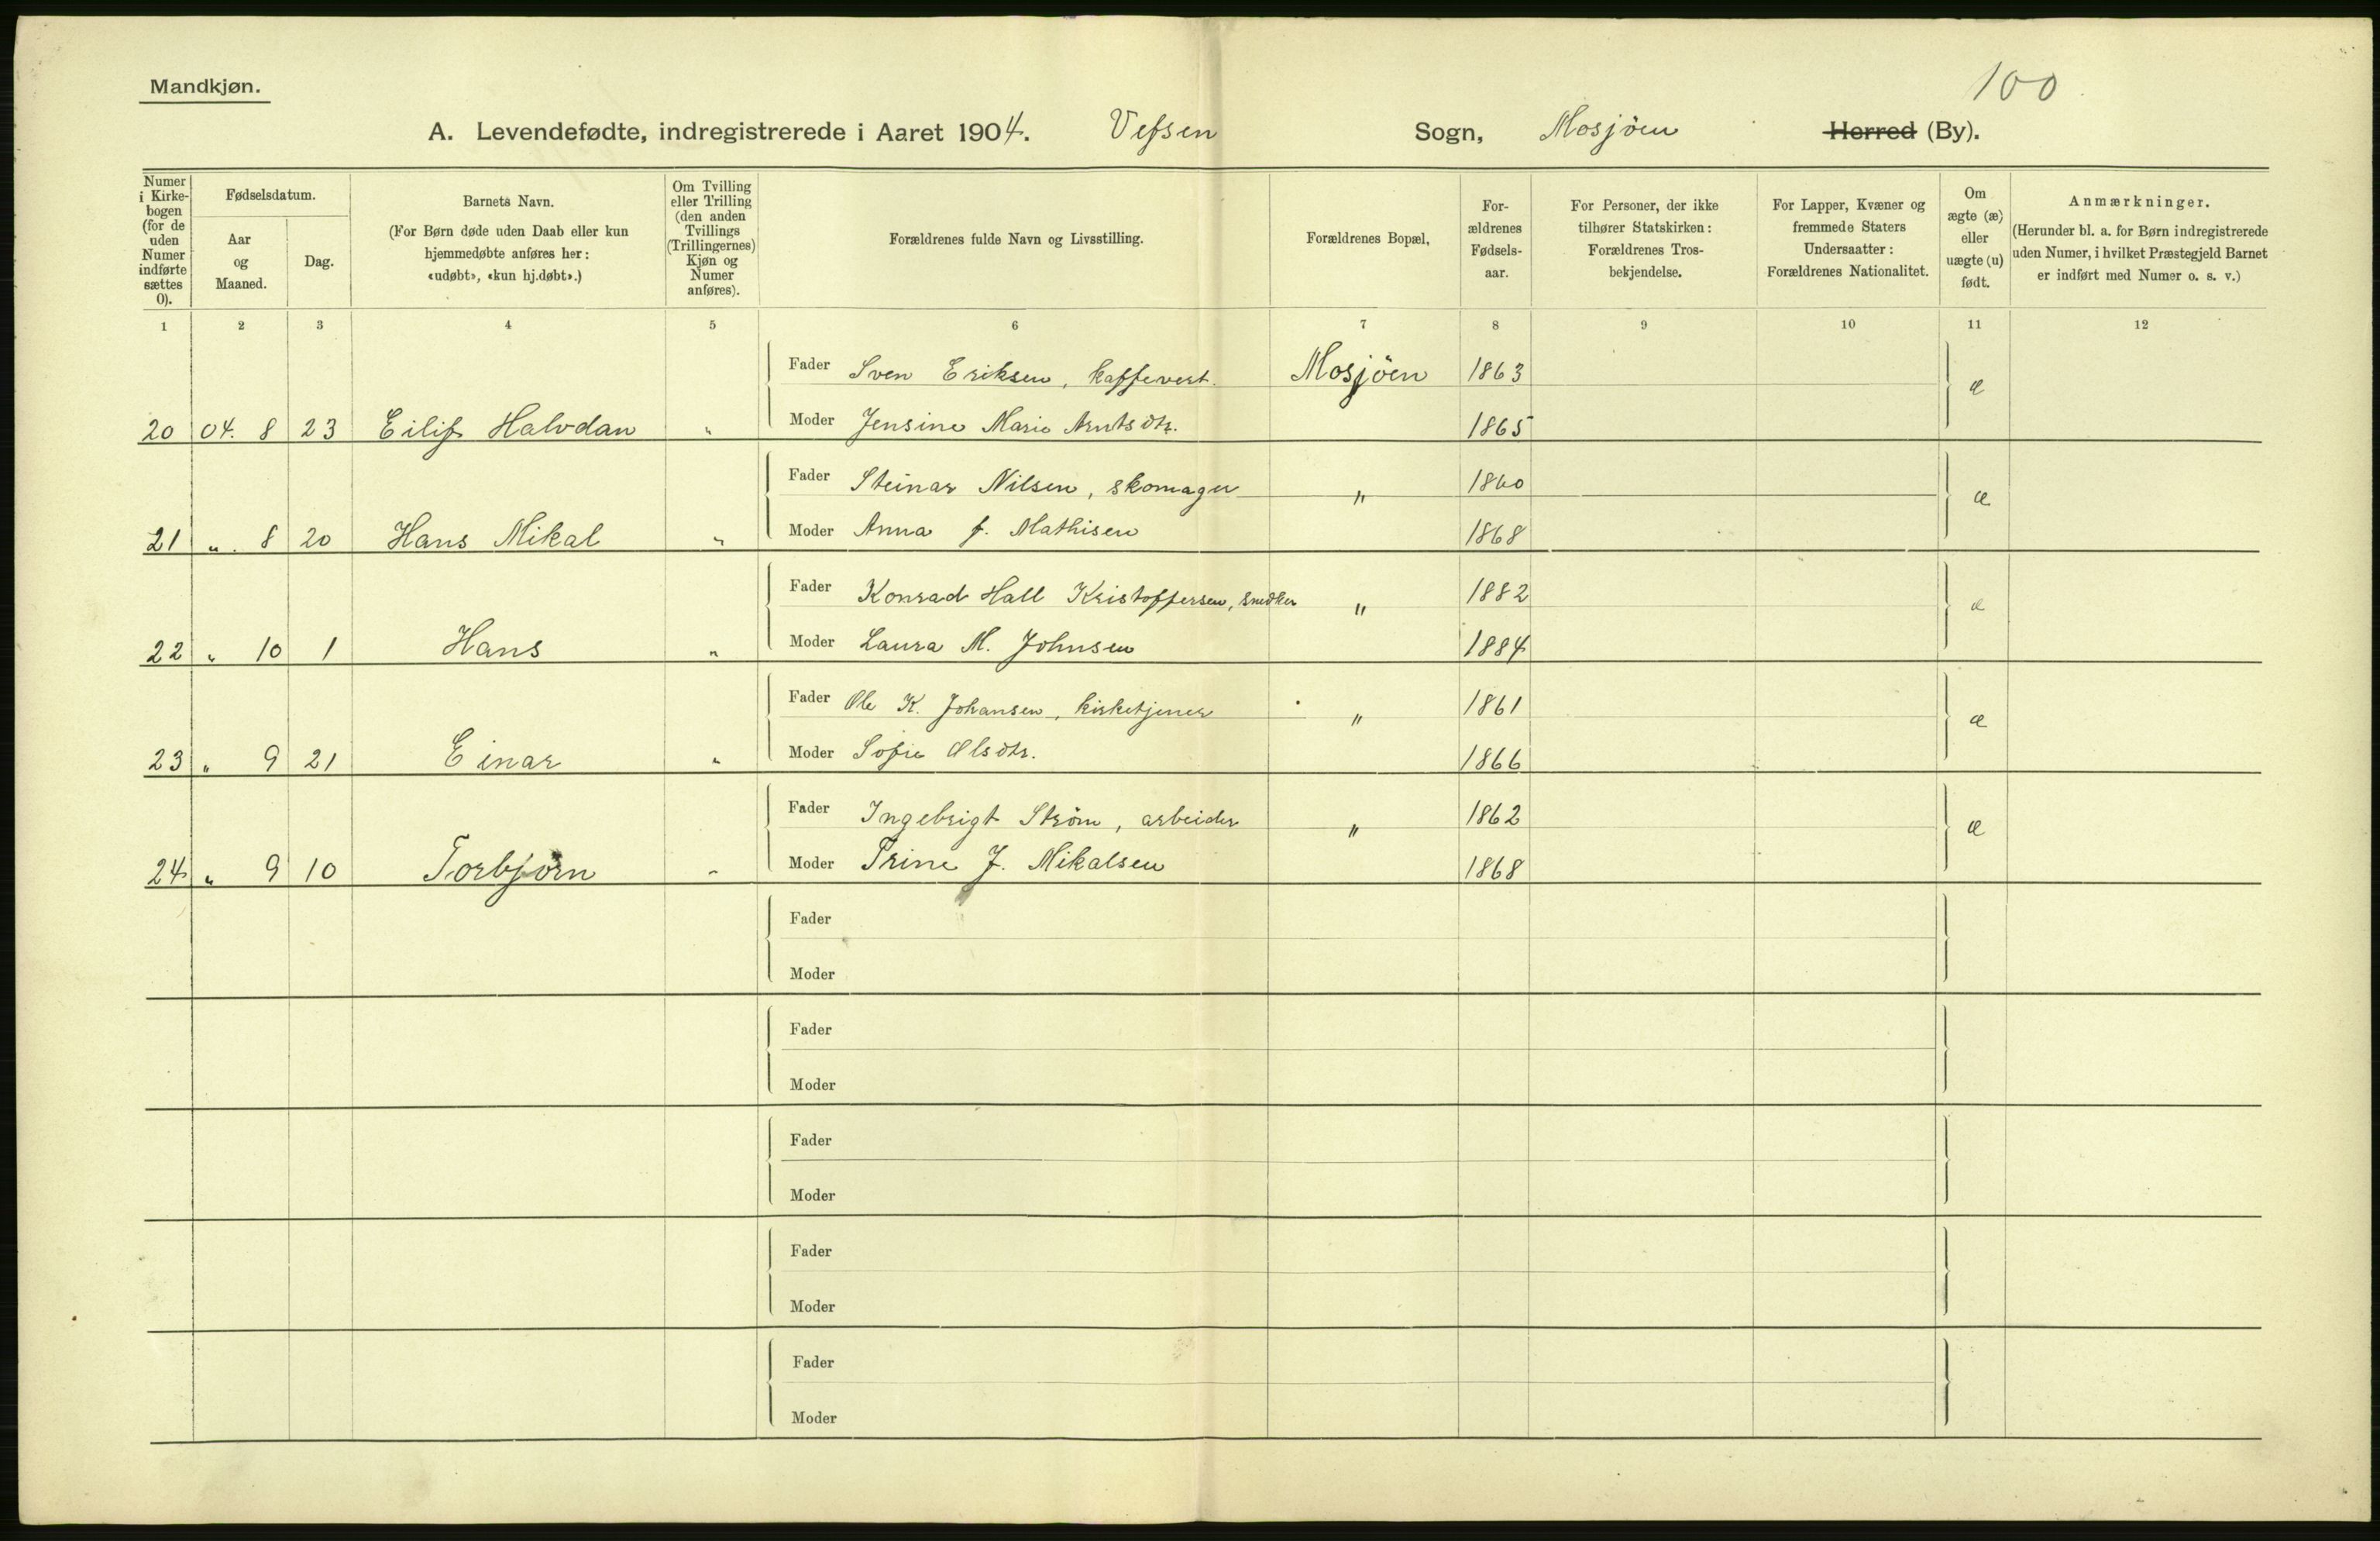 100
Mandkjøn.
A. Levendefødte, indregistrerede i Aaret 1904. Vefsen Sogn, Mosjöen Herred (By).
Numer i Kirkebogen (for de uden Numer indførte sættes 0).
Fødselsdatum.
Aar og Maaned.
Dag.
Barnets Navn.
(For Børn døde uden Daab eller kun hjemmedøbte anføres her: «udøbt», «kun hj.døbt».)
Om Tvilling eller Trilling (den anden Tvillings (Trillingernes) Kjøn og Numer anføres).
Forældrenes fulde Navn og Livsstilling.
Forældrenes Bopæl,
Forældrenes Fødselsaar.
For Personer, der ikke tilhører Statskirken: Forældrenes Trosbekjendelse.
For Lapper, Kvæner og fremmede Staters Undersaatter: Forældrenes Nationalitet.
Om ægte (æ) eller uægte (u) født.
Anmærkninger.
(Herunder bl. a. for Børn indregistrerede uden Numer, i hvilket Præstegjeld Barnet er indført med Numer o. s. v.)
1 2 3 4 5 6 7 8 9 10 11 12
Fader Sven Eriksen, kaffevert. Mosjöen 1863 æ
20 04. 8 23 Eilif Halvdan " Moder Jensine Marie Arntsdtr. 1865
Fader Steinar Nilsen, skomager " 1860 æ
21 " 8 20 Hans Mikal " Moder Anna f. Mathisen 1868
Fader Konrad Hall Kristoffersen, snedker " 1882 æ
22 " 10 1 Hans " Moder Laura M. Johnsen 1884
Fader Ole K. Johansen, kirketjener " 1861 æ
23 " 9 21 Einar " Moder Sofie Olsdtr. 1866
Fader Ingebrigt Ström, arbeider " 1862 æ
24 " 9 10 Torbjörn " Moder Trine J. Mikalsen 1868
Fader
Moder
Fader
Moder
Fader
Moder
Fader
Moder
Fader
Moder